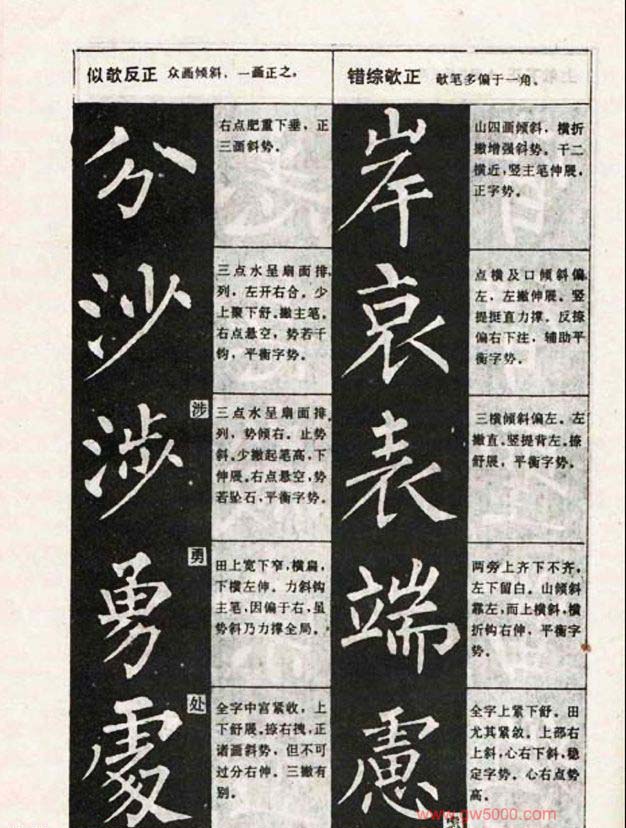 似欹反正 众画倾斜，一画正之。
分
右点肥重下垂，正
三画斜势。
沙
三点水呈扇面排
列，左开右合。少
上聚下舒。撇主笔。
右点悬空，势若千
钧，平衡字势。
涉
涉
三点水呈扇面排
列，势倾右。止势
斜。少撇起笔高，下
伸展。右点悬空，势
若坠石，平衡字势。
勇
勇
田上宽下窄，横扁，
下横左伸。力斜钩
主笔，因偏于右，虽
势斜乃力撑全局。
处
處
全字中宫紧收，上
下舒展。捺右拽，正
诸画斜势，但不可
过分右伸。三撇有
别。
错综欹正 欹笔多偏于一角。
岸
山四画倾斜，横折
撇增强斜势。干二
横近，竖主笔伸展，
正字势。
哀
点横及口倾斜偏
左，左撇伸展。竖
提挺直力撑。反捺
偏右下注，辅助平
衡字势。
表
三横倾斜偏左。左
撇直。竖提背左。捺
舒展，平衡字势。
端
两旁上齐下不齐，
左下留白。山倾斜
靠左，而上横斜，横
折钩右伸，平衡字
势。
慮
全字上紧下舒。田
尤其紧敛。上部右
上斜，心右下斜，稳
定字势。心右点势
高。
www.gw5000.com